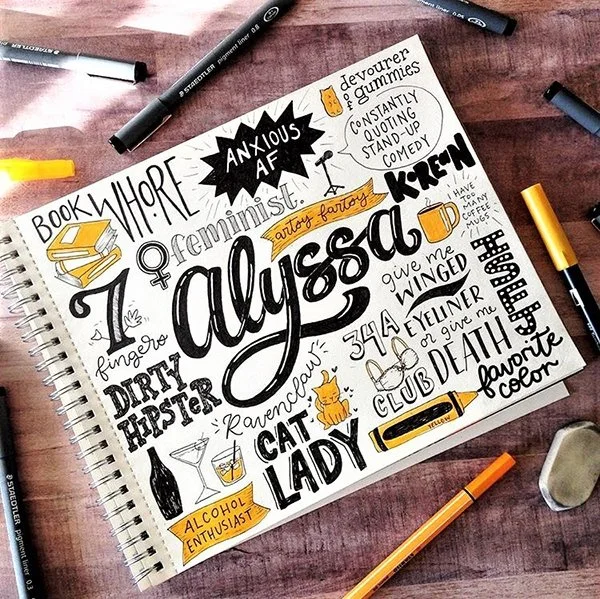 devourer
of
gummies
CONSTANTLY
QUOTING
STAND-UP
COMEDY
ANXIOUS
AF
BOOK WHORE
feminist.
artsy fartsy
KOREAN
I HAVE
TOO
MANY
COFFEE
MUGS
7
fingers
alyssa
give me
WINGED
EYELINER
or give me
DEATH
JEWISH
34A
CLUB
favorite
color
YELLOW
DIRTY
HIPSTER
Ravenclaw
CAT
LADY
ALCOHOL
ENTHUSIAST
STAEDTLER pigment liner 0.8
STAEDTLER
STAEDTLER pigment liner 0.3